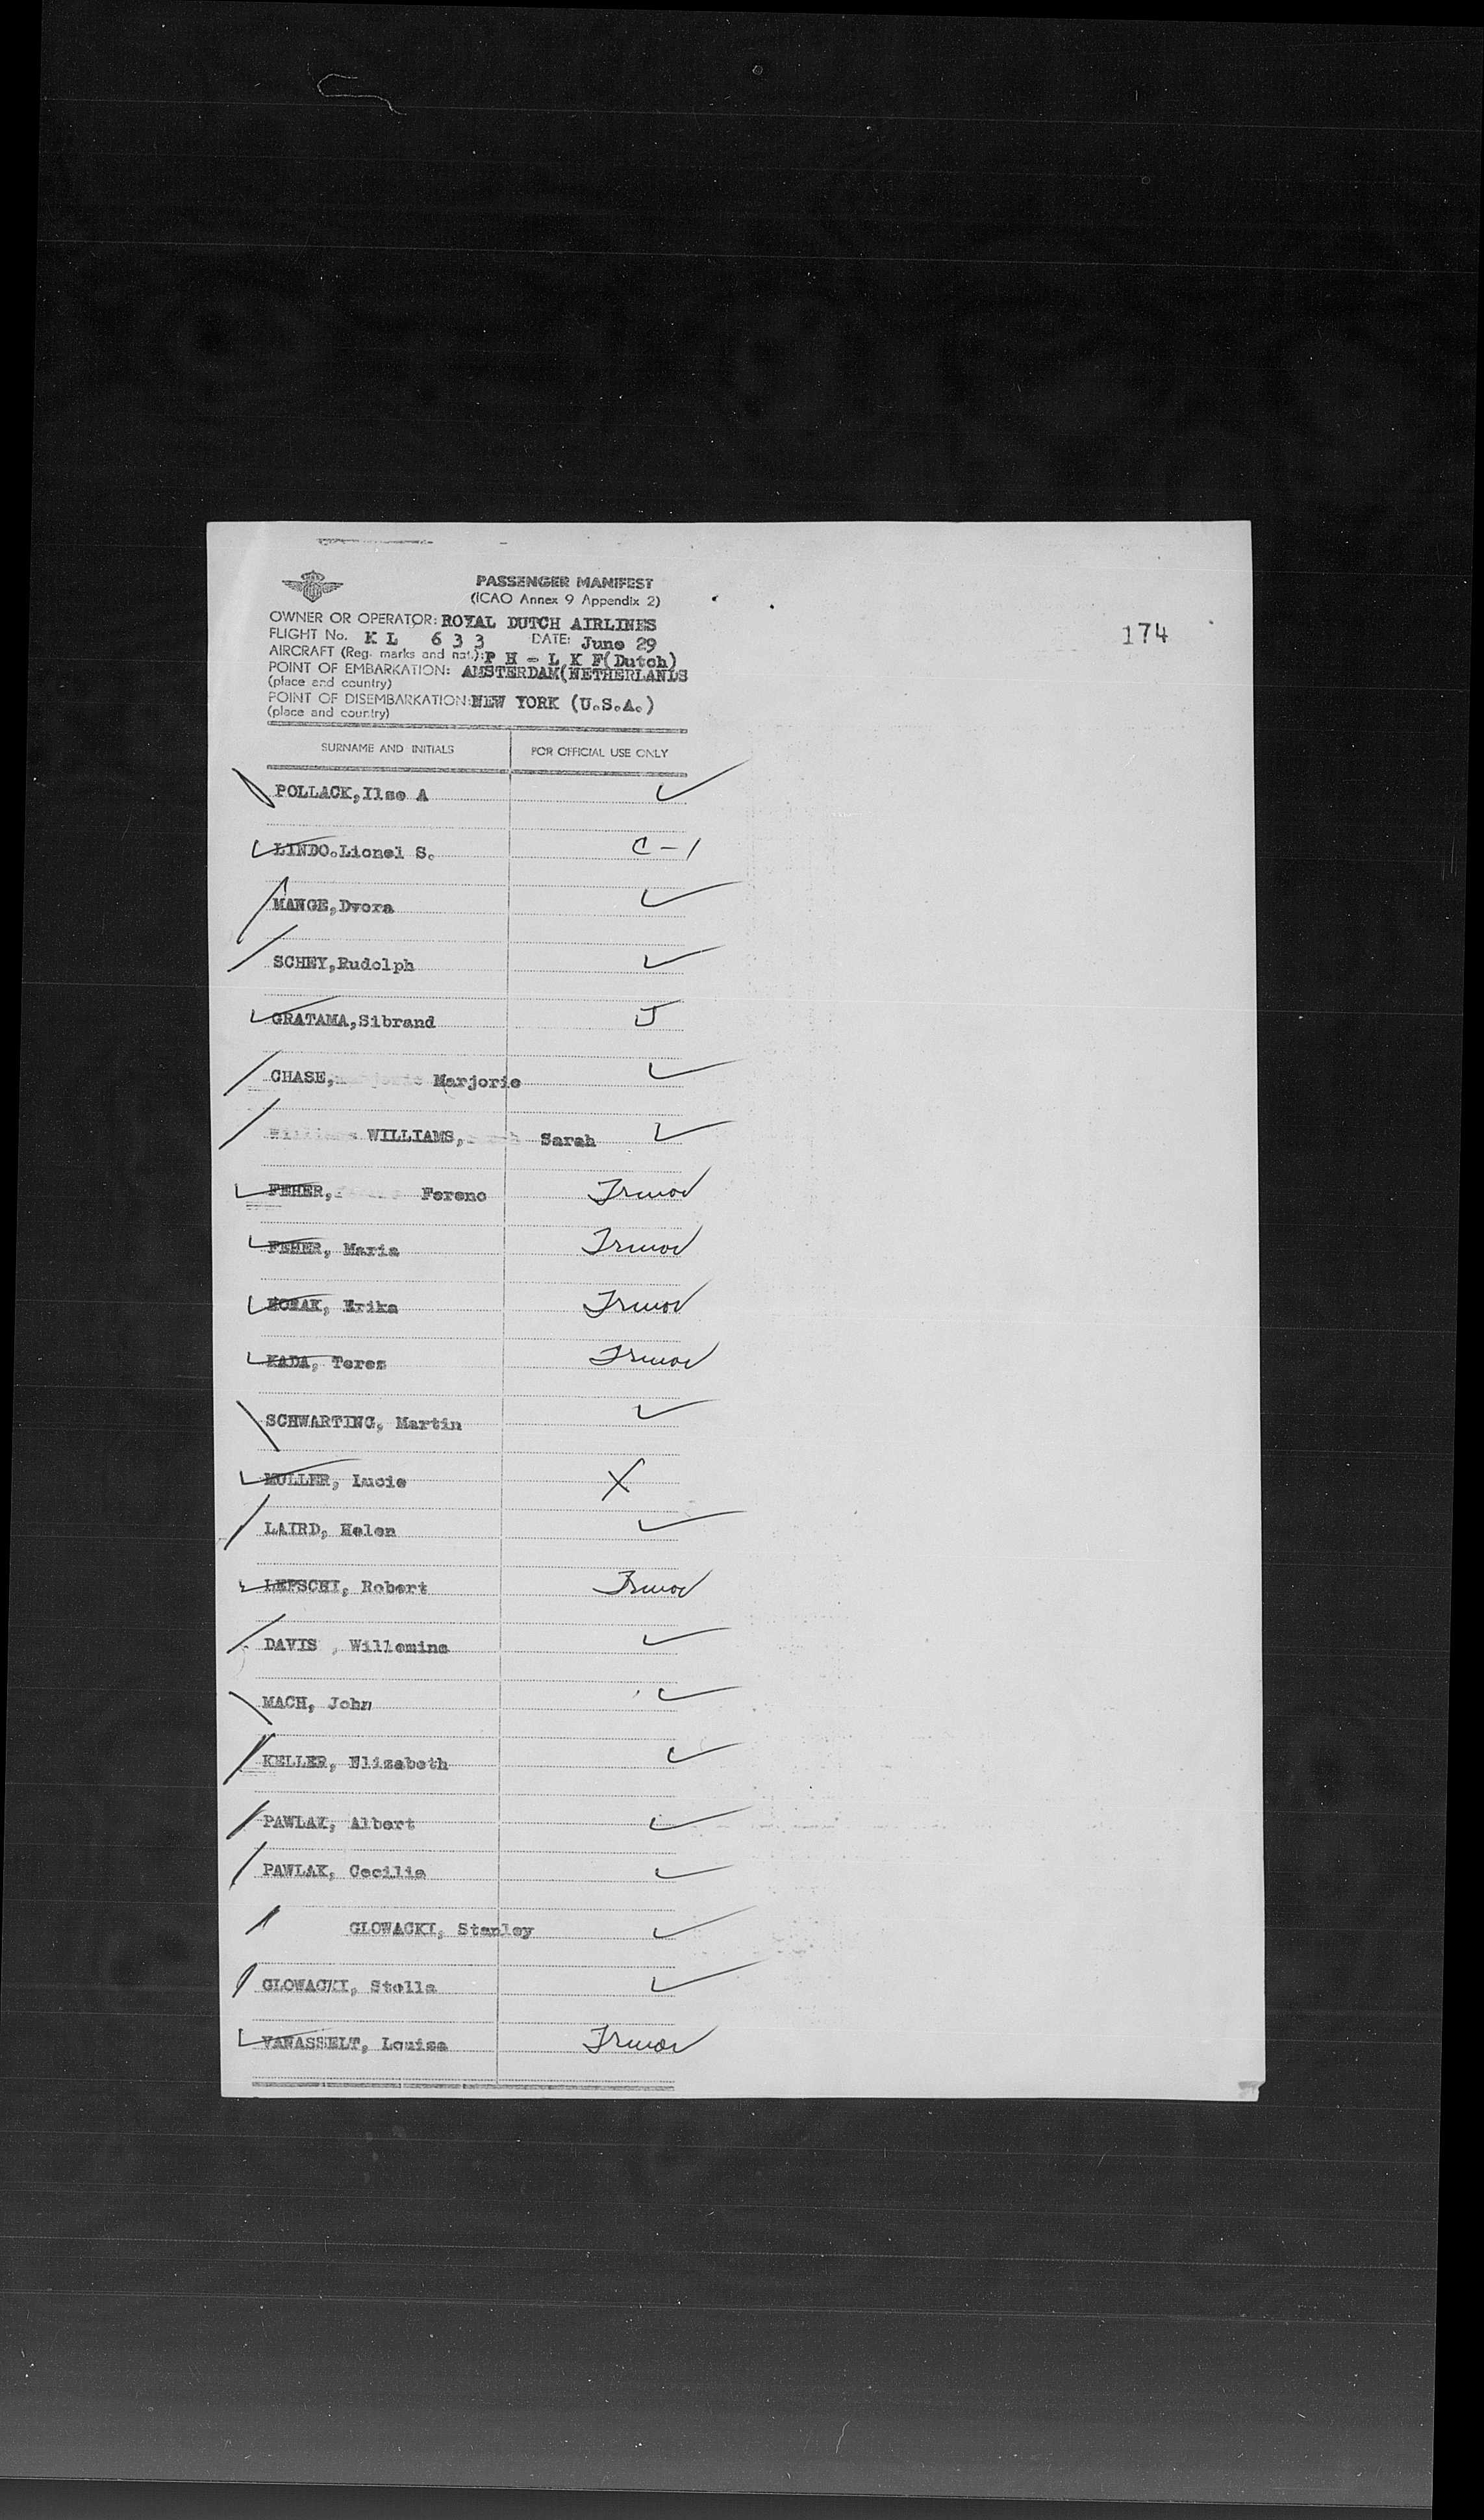 PASSENGER MANIFEST
(ICAO Annex 9 Appendix 2)
OWNER OR OPERATOR: ROYAL DUTCH AIRLINES
FLIGHT No. K L 6 3 3 DATE: June 29
174
AIRCRAFT (Reg. marks and nat.): P H - L K F(Dutch)
POINT OF EMBARKATION: AMSTERDAM(NETHERLANDS
(place and country)
POINT OF DISEMBARKATION: NEW YORK (U.S.A.)
(place and country)
SURNAME AND INITIALS FOR OFFICIAL USE ONLY
POLLACK,Ilse A
LINDO.Lionel S. C-1
MANGE,Dvora
SCHEY,Rudolph
GRATAMA,Sibrand J
CHASE, Marjorie
WILLIAMS, Sarah
FEHER, Ferenc
FEHER, Maria
Erika
KADA, Terez
SCHWARTING, Martin
MULLER, Lucie X
LAIRD, Helen
Robert
DAVIS , Willemina
MACH, John
KELLER, Elizabeth
PAWLAK, Albert
PAWLAK, Cecilia
GLOWACKI, Stanley
GLOWACKI, Stella
VANASSELT, Louisa